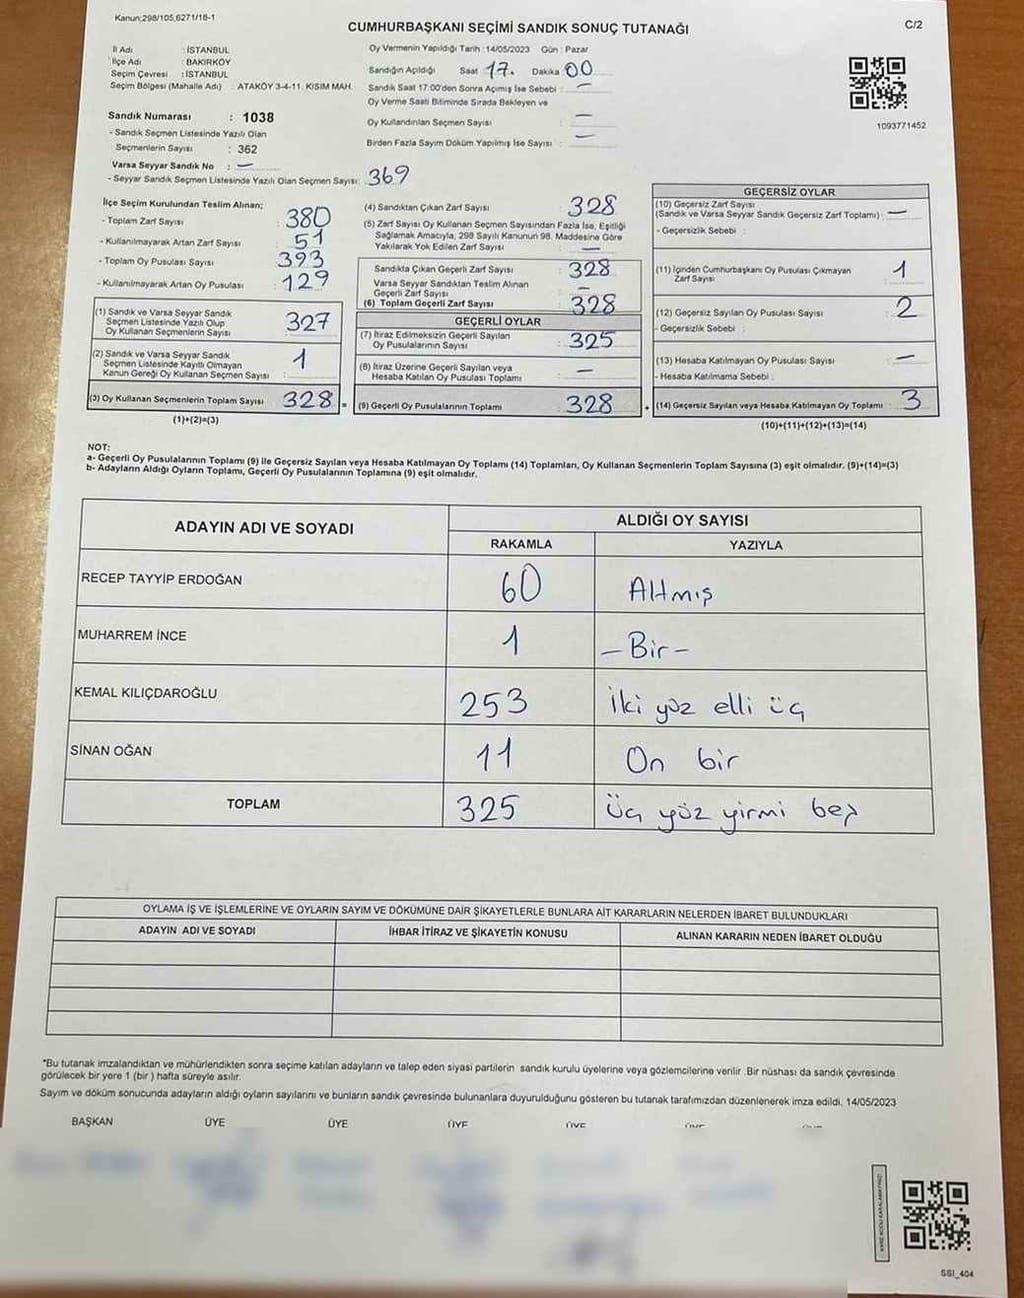 Kanun;298/105,6271/16-1
CUMHURBAŞKANI SEÇİMİ SANDIK SONUÇ TUTANAĞI
C/2
İl Adı : İSTANBUL
İlçe Adı : BAKIRKÖY
Seçim Çevresi : İSTANBUL
Seçim Bölgesi (Mahalle Adı) : ATAKÖY 3-4-11. KISIM MAH.
Sandık Numarası : 1038
- Sandık Seçmen Listesinde Yazılı Olan
Seçmenlerin Sayısı : 362
Varsa Seyyar Sandık No : —
- Seyyar Sandık Seçmen Listesinde Yazılı Olan Seçmen Sayısı: 369
Oy Vermenin Yapıldığı Tarih :14/05/2023 Gün : Pazar
Sandığın Açıldığı Saat 17. Dakika 00
Sandık Saat 17:00'den Sonra Açımış İse Sebebi : —
Oy Verme Saati Bitiminde Sırada Bekleyen ve
Oy Kullandırılan Seçmen Sayısı : —
Birden Fazla Sayım Döküm Yapılmış İse Sayısı : —
1093771452
İlçe Seçim Kurulundan Teslim Alınan;
- Toplam Zarf Sayısı : 380
- Kullanılmayarak Artan Zarf Sayısı : 51
- Toplam Oy Pusulası Sayısı : 393
- Kullanılmayarak Artan Oy Pusulası : 129
(1) Sandık ve Varsa Seyyar Sandık
Seçmen Listesinde Yazılı Olup
Oy Kullanan Seçmenlerin Sayısı : 327
(2) Sandık ve Varsa Seyyar Sandık
Seçmen Listesinde Kayıtlı Olmayan
Kanun Gereği Oy Kullanan Seçmen Sayısı : 1
(3) Oy Kullanan Seçmenlerin Toplam Sayısı 328 =
(1)+(2)=(3)
(4) Sandıktan Çıkan Zarf Sayısı : 328
(5) Zarf Sayısı Oy Kullanan Seçmen Sayısından Fazla İse, Eşitliği
Sağlamak Amacıyla, 298 Sayılı Kanunun 98. Maddesine Göre
Yakılarak Yok Edilen Zarf Sayısı : —
Sandıkta Çıkan Geçerli Zarf Sayısı : 328
Varsa Seyyar Sandıktan Teslim Alınan
Geçerli Zarf Sayısı : —
(6) Toplam Geçerli Zarf Sayısı : 328
GEÇERLİ OYLAR
(7) İtiraz Edilmeksizin Geçerli Sayılan
Oy Pusulalarının Sayısı : 325
(8) İtiraz Üzerine Geçerli Sayılan veya
Hesaba Katılan Oy Pusulası Toplamı : —
(9) Geçerli Oy Pusulalarının Toplamı : 328 +
GEÇERSİZ OYLAR
(10) Geçersiz Zarf Sayısı
(Sandık ve Varsa Seyyar Sandık Geçersiz Zarf Toplamı) : —
- Geçersizlik Sebebi :
(11) İçinden Cumhurbaşkanı Oy Pusulası Çıkmayan
Zarf Sayısı : 1
(12) Geçersiz Sayılan Oy Pusulası Sayısı : 2
- Geçersizlik Sebebi :
(13) Hesaba Katılmayan Oy Pusulası Sayısı : —
- Hesaba Katılmama Sebebi :
(14) Geçersiz Sayılan veya Hesaba Katılmayan Oy Toplamı : 3
(10)+(11)+(12)+(13)=(14)
NOT:
a- Geçerli Oy Pusulalarının Toplamı (9) ile Geçersiz Sayılan veya Hesaba Katılmayan Oy Toplamı (14) Toplamları, Oy Kullanan Seçmenlerin Toplam Sayısına (3) eşit olmalıdır. (9)+(14)=(3)
b- Adayların Aldığı Oyların Toplamı, Geçerli Oy Pusulalarının Toplamına (9) eşit olmalıdır.
ADAYIN ADI VE SOYADI
ALDIĞI OY SAYISI
RAKAMLA YAZIYLA
RECEP TAYYİP ERDOĞAN 60 Altmış
MUHARREM İNCE 1 – Bir –
KEMAL KILIÇDAROĞLU 253 İki yüz elli üç
SİNAN OĞAN 11 On bir
TOPLAM 325 Üç yüz yirmi beş
OYLAMA İŞ VE İŞLEMLERİNE VE OYLARIN SAYIM VE DÖKÜMÜNE DAİR ŞİKAYETLERLE BUNLARA AİT KARARLARIN NELERDEN İBARET BULUNDUKLARI
ADAYIN ADI VE SOYADI İHBAR İTİRAZ VE ŞİKAYETİN KONUSU ALINAN KARARIN NEDEN İBARET OLDUĞU
*Bu tutanak imzalandıktan ve mühürlendikten sonra seçime katılan adayların ve talep eden siyasi partilerin sandık kurulu üyelerine veya gözlemcilerine verilir .Bir nüshası da sandık çevresinde
görülecek bir yere 1 (bir ) hafta süreyle asılır.
Sayım ve döküm sonucunda adayların aldığı oyların sayılarını ve bunların sandık çevresinde bulunanlara duyurulduğunu gösteren bu tutanak tarafımızdan düzenlenerek imza edildi. 14/05/2023
BAŞKAN ÜYE ÜYE ÜYE ÜYE ÜYE
SSI_404